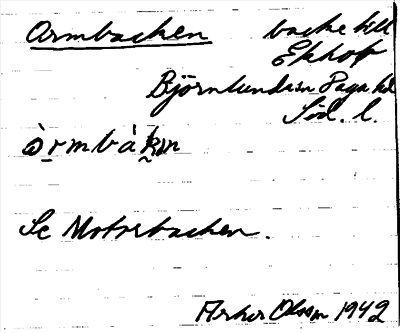 Ormbacken backe till
Ekhov
Björnlunda sn Daga hd
Söd. l.
òrmbàkən
Se Motorbacken.
Olsson 1942